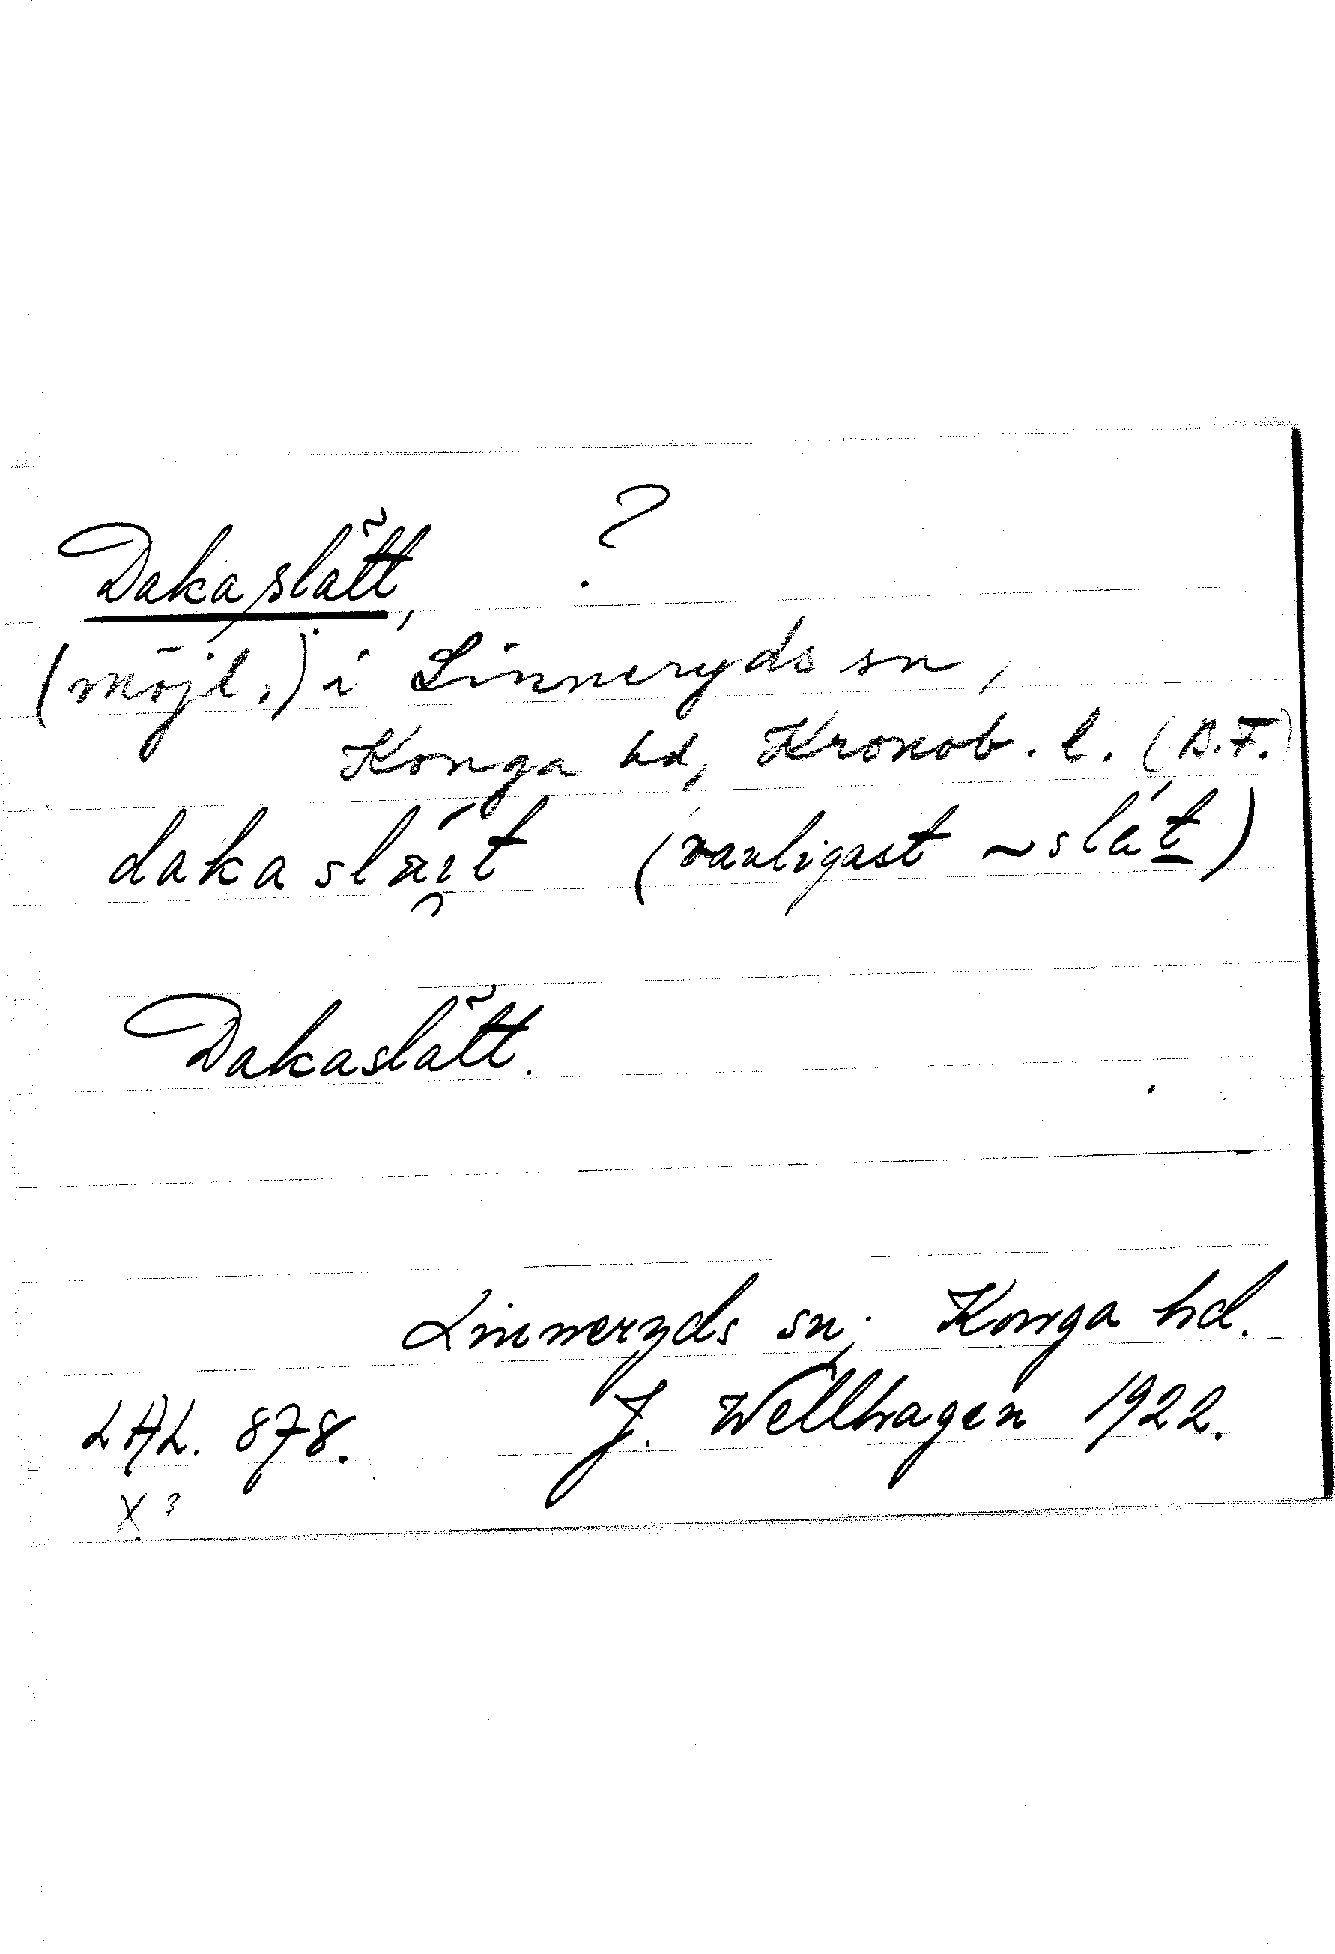 Dakaslätt, ?
(möjl.) i Linneryds sn,
Konga hd, Kronob. l. (B.F.)
daka (vanligast ~slät)
Dakaslätt.
Linneryds sn; Konga hd.
LAL. 878. J. Wellhagen 1922.
X?